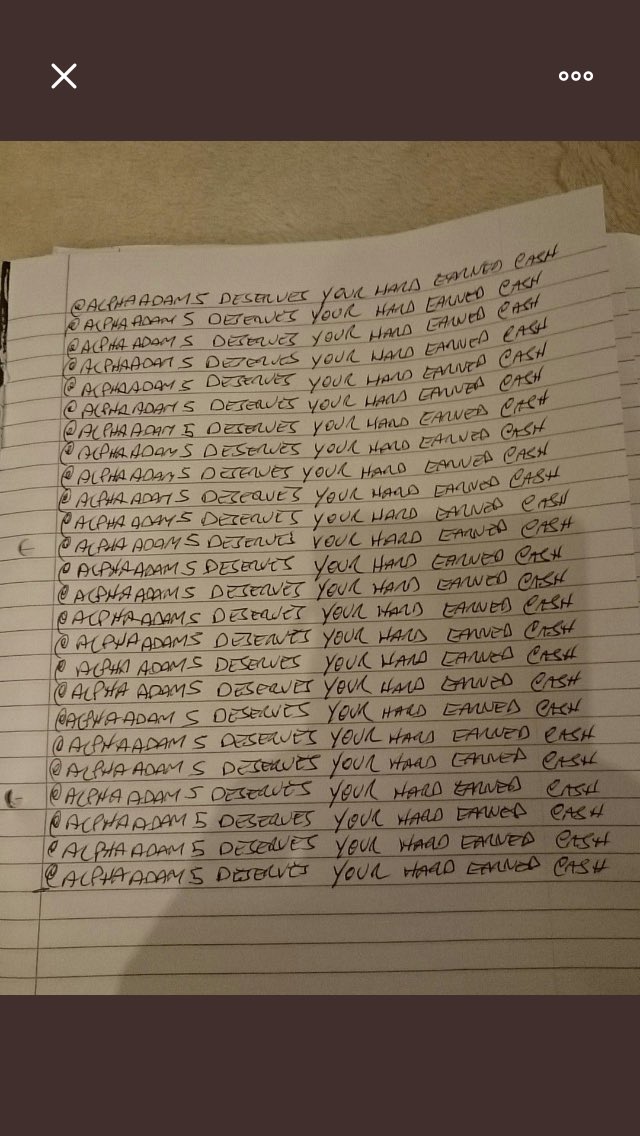 @ALPHAADAMS DESERVES YOUR HARD EARNED CASH
@ALPHAADAMS DESERVES YOUR HARD EARNED CASH
@ALPHAADAMS DESERVES YOUR HARD EARNED CASH
@ALPHAADAMS DESERVES YOUR HARD EARNED CASH
@ALPHAADAMS DESERVES YOUR HARD EARNED CASH
@ALPHAADAMS DESERVES YOUR HARD EARNED CASH
@ALPHAADAMS DESERVES YOUR HARD EARNED CASH
@ALPHAADAMS DESERVES YOUR HARD EARNED CASH
@ALPHAADAMS DESERVES YOUR HARD EARNED CASH
@ALPHAADAMS DESERVES YOUR HARD EARNED CASH
@ALPHAADAMS DESERVES YOUR HARD EARNED CASH
@ALPHA ADAMS DESERVES YOUR HARD EARNED CASH
@ALPHAADAMS DESERVES YOUR HARD EARNED CASH
@ALPHAADAMS DESERVES YOUR HARD EARNED CASH
@ALPHAADAMS DESERVES YOUR HARD EARNED CASH
@ALPHAADAMS DESERVES YOUR HARD EARNED CASH
@ALPHA ADAMS DESERVES YOUR HARD EARNED CASH
@ALPHA ADAMS DESERVES YOUR HARD EARNED CASH
@ALPHAADAMS DESERVES YOUR HARD EARNED CASH
@ALPHAADAMS DESERVES YOUR HARD EARNED CASH
@ALPHAADAMS DESERVES YOUR HARD EARNED CASH
@ALPHAADAMS DESERVES YOUR HARD EARNED CASH
@ALPHAADAMS DESERVES YOUR HARD EARNED CASH
@ALPHAADAMS DESERVES YOUR HARD EARNED CASH
@ALPHAADAMS DESERVES YOUR HARD EARNED CASH